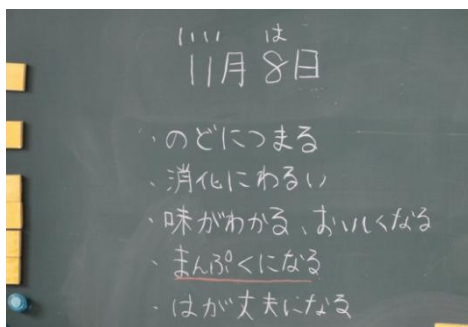 いいい は
11月8日
・のどにつまる
・消化にわるい
・味がわかる、おいしくなる
・まんぷくになる
・はが丈夫になる